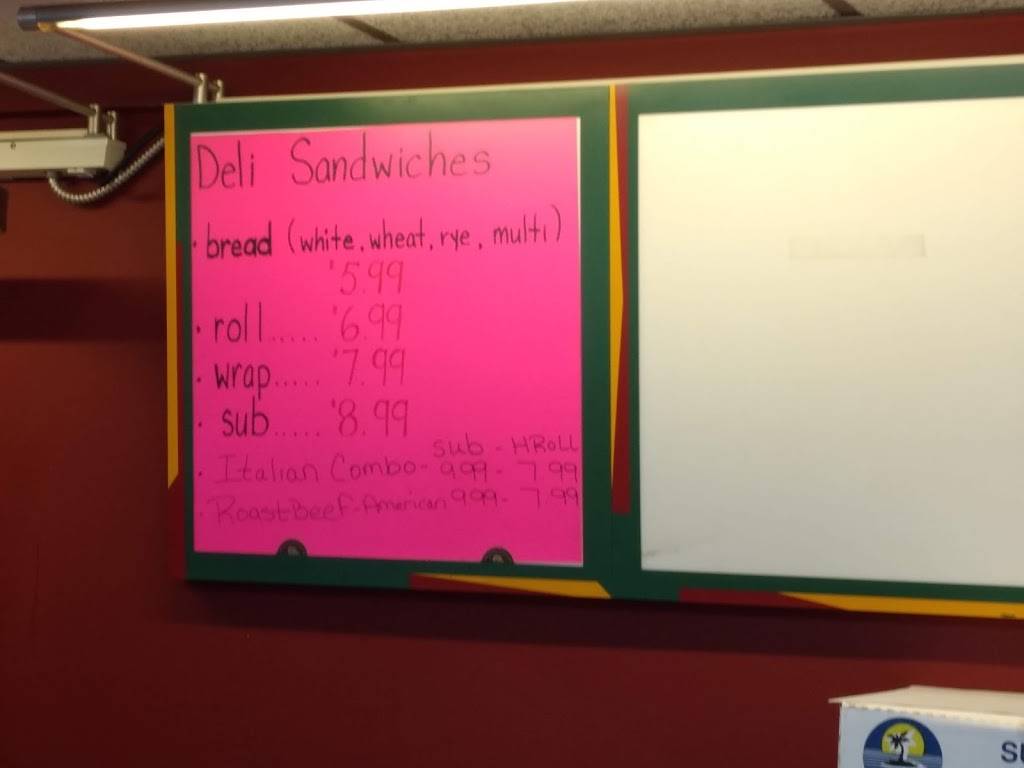 Deli Sandwiches
· bread (white, wheat, rye, multi)
'5.99
· roll..... '6.99
· wrap..... '7.99
· sub..... '8.99
sub - HRoll
· Italian Combo - 999 - 7 99
· Roast Beef - American 999 - 7.99